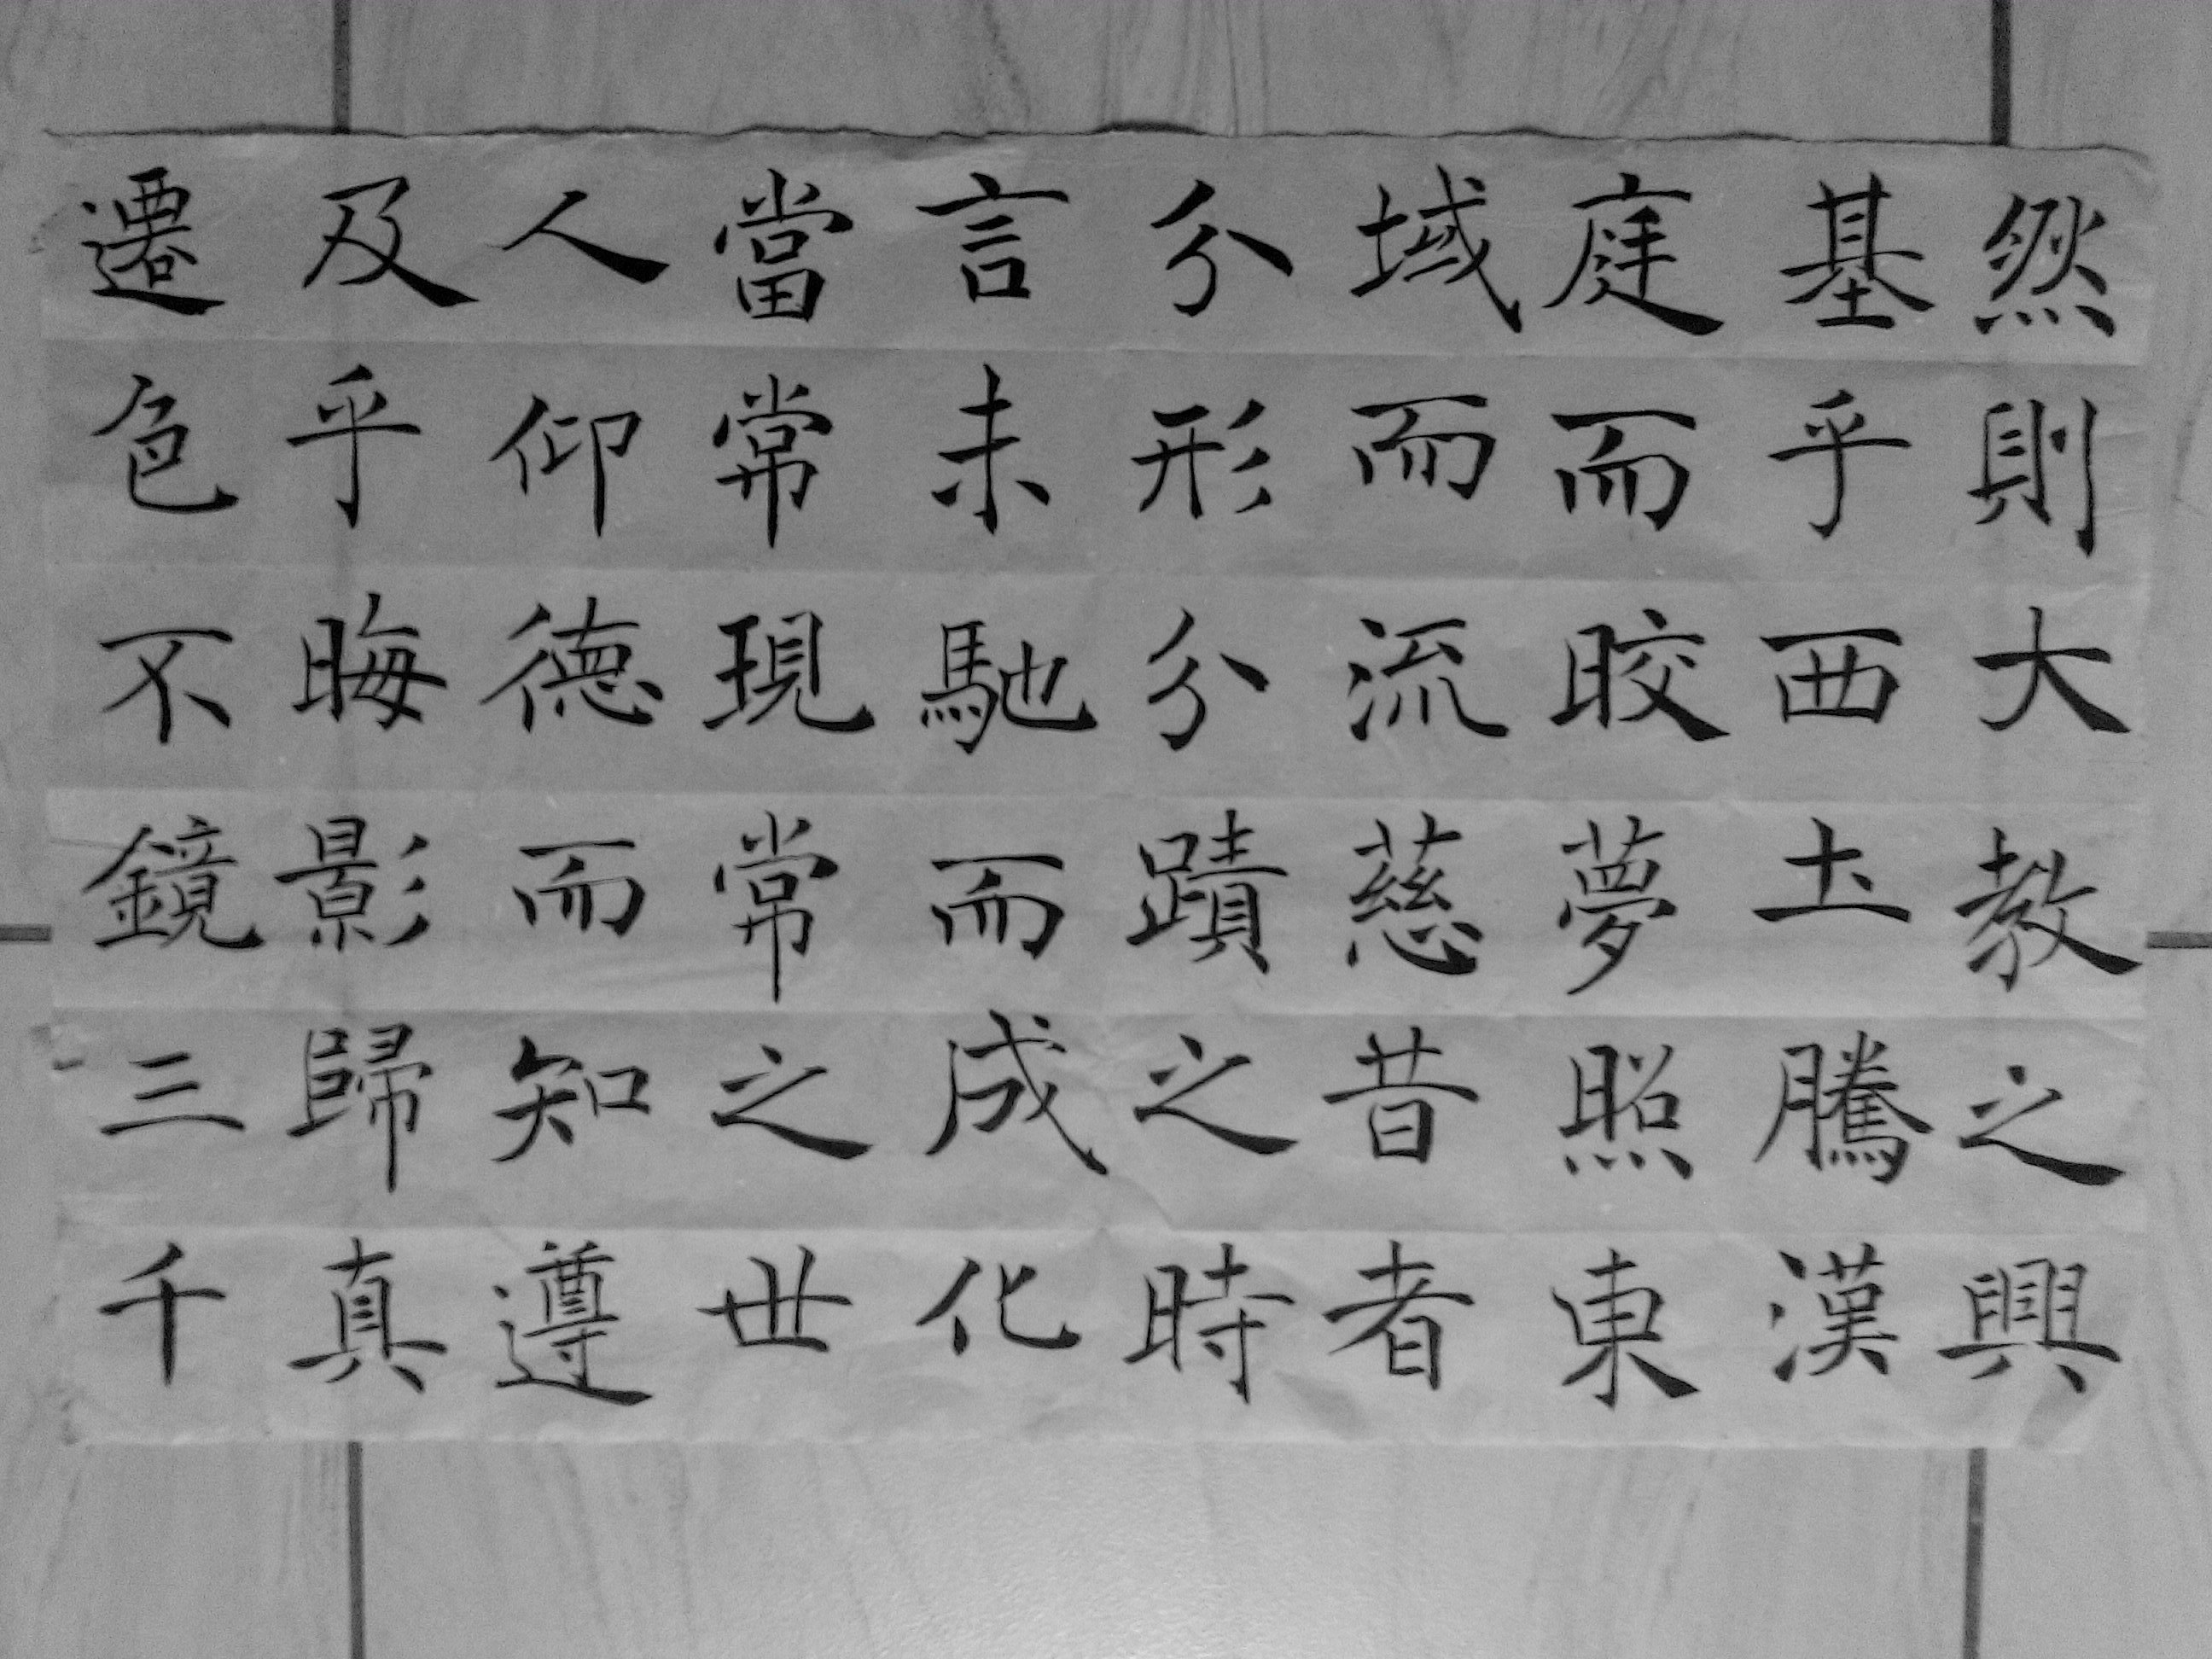 然則大教之興
基乎西土騰漢
庭而晈夢照東
域而流慈昔者
分形分蹟之時
言未馳而成化
當常現常之世
人仰德而知遵
及乎晦影歸真
遷色不鏡三千